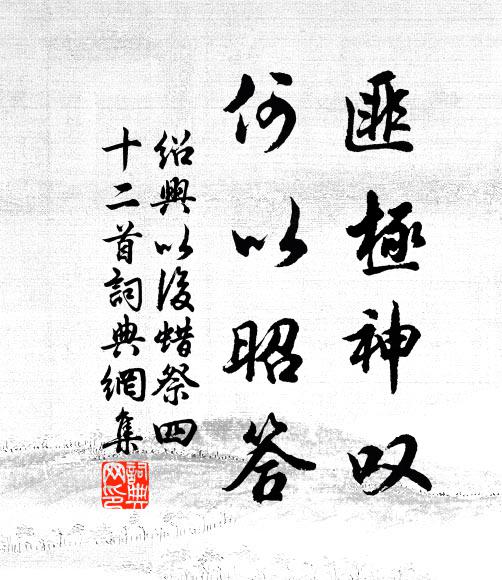 匪極神叹
何以昭答
紹興以後蜡祭四
十二首詞典網集
詞典网印